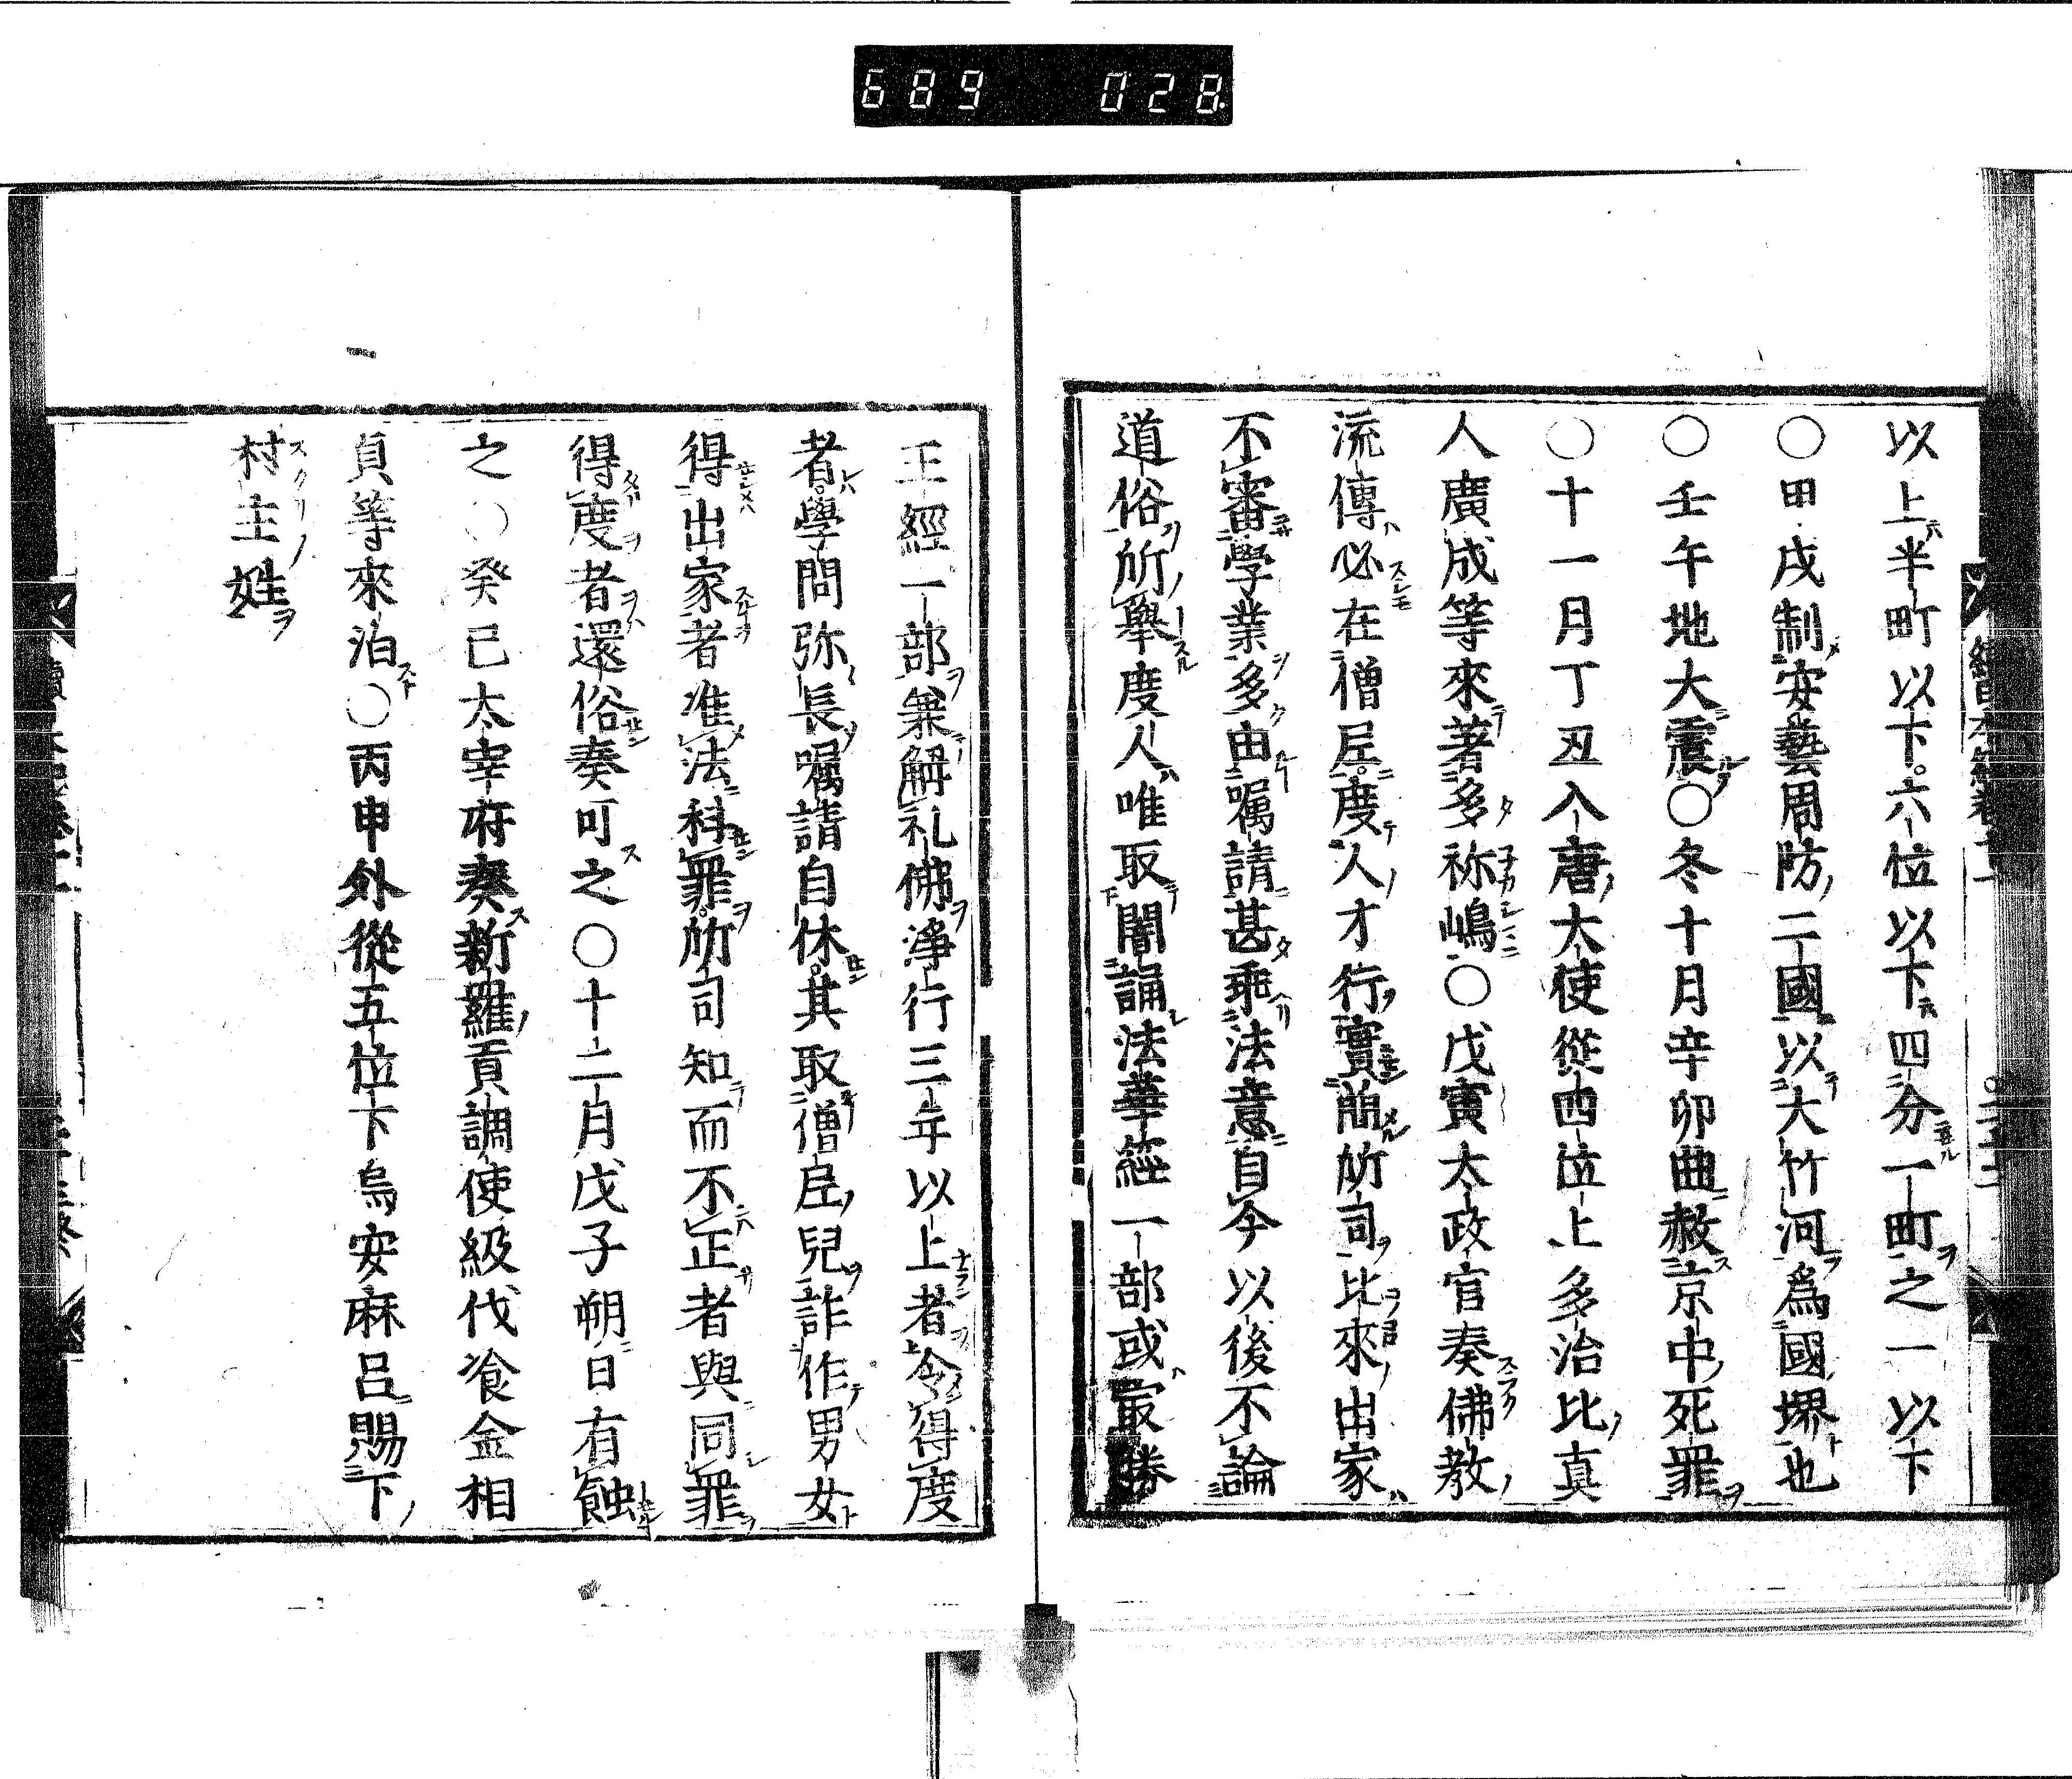 689 028
以上半町以下六位以下四分一町之一以下
〇甲戌制安藝周防二國以大竹河爲國堺也
〇壬午地大震〇冬十月辛卯曲赦京中死罪
〇十一月丁丑入唐大使從四位上多治比真
人廣成等來著多祢嶋〇戊寅太政官奏佛教
流傳必在僧尼度人才行實簡所司比來出家
不審學業多由囑請甚乖法意自今以後不論
道俗所擧度人唯取闇誦法華經一部或最勝
王經一部兼解礼佛淨行三年以上者令得度
者學問弥長囑請自休其取僧尼兒詐作男女
得出家者准法科罪所司知而不正者與同罪
得度者還俗奏可之〇十二月戊子朔日有蝕
之〇癸巳太宰府奏新羅貢調使級伐飡金相
貞等來泊〇丙申外從五位下烏安麻呂賜下
村主姓